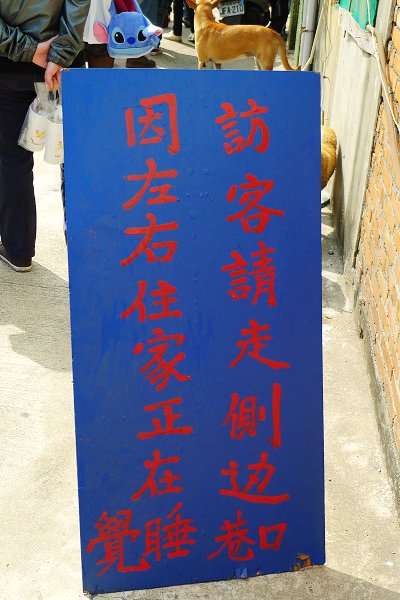 訪客請走側边巷口
因左右住家正在睡覺
FA210